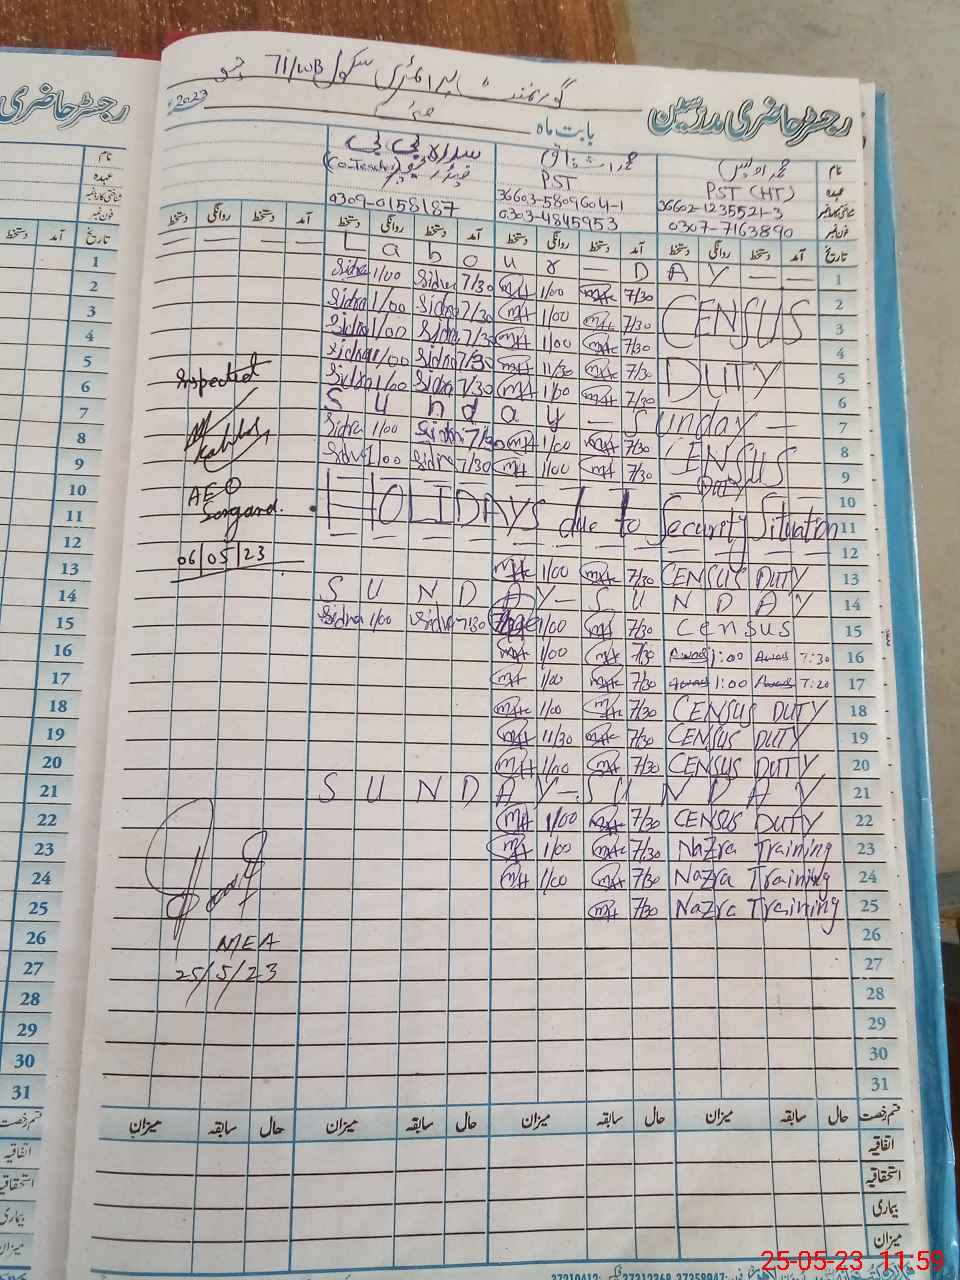 رجسٹر حاضری
گورنمنٹ پرائمری سکول 71/WB
رجسٹر حاضری مدرسین
بابت ماہ مئی 2023
نام
عہدہ
شناختی کارڈ نمبر
فون نمبر
محمد اویس
PST (HT)
36602-1235521-3
0307-7163890
PST
36603-5809604-1
0303-4845953
سدرہ بی بی
(Co-Teacher)
0309-0158187
تاریخ آمد دستخط روانگی دستخط آمد دستخط روانگی دستخط آمد دستخط روانگی دستخط آمد دستخط روانگی دستخط
1 — — — — L a b o u r — D A Y — — 1
2 Sidra 1/00 Sidra 7/30 1/00 7/30 2
3 Sidra 1/00 Sidra 7/30 1/00 7/30 CENSUS 3
4 Sidra 1/00 Sidra 7/30 1/00 7/30 4
5 Sidra 11/00 Sidra 7/30 11/30 7/30 DUTY 5
6 Sidra 1/00 Sidra 7/30 1/00 7/30 6
7 S u n d a y — Sunday — 7
8 Sidra 1/00 Sidra 7/30 1/00 7/30 CENSUS 8
9 Sidra 1/00 Sidra 7/30 1/00 7/30 DUTY 9
10 10
11 HOLIDAYS due to Security Situation 11
12 12
13 1/00 7/30 CENSUS DUTY 13
14 S U N D A Y — S U N D A Y 14
15 Sidra 1/00 Sidra 7:30 1/00 7/30 Census 15
16 1/00 7/30 Awais 1:00 Awais 7:30 16
17 1/00 7/30 Awais 1:00 Awais 7:20 17
18 1/00 7/30 CENSUS DUTY 18
19 11/30 7/30 CENSUS DUTY 19
20 1/00 7/30 CENSUS DUTY 20
21 S U N D A Y — S U N D A Y 21
22 1/00 7/30 CENSUS DUTY 22
23 1/00 7/30 Nazra Training 23
24 1/00 7/30 Nazra Training 24
25 7/30 Nazra Training 25
26 26
27 27
28 28
29 29
30 30
31 31
Inspected
AEO
06/05/23
MEA
25/5/23
قسم رخصت حال سابقہ میزان حال سابقہ میزان حال سابقہ میزان
اتفاقیہ
استحقاقیہ
بیماری
میزان
25-05-23 11:59